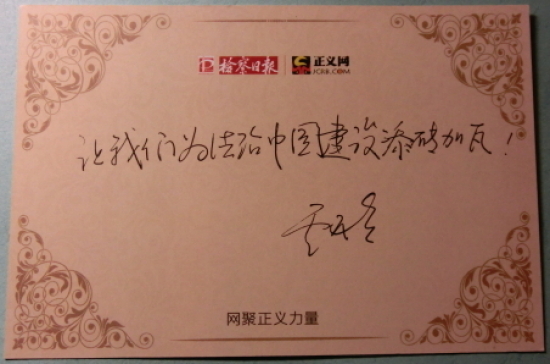 检察日报 正义网
JCRB.COM
让我们为法治中国建设添砖加瓦！
网聚正义力量